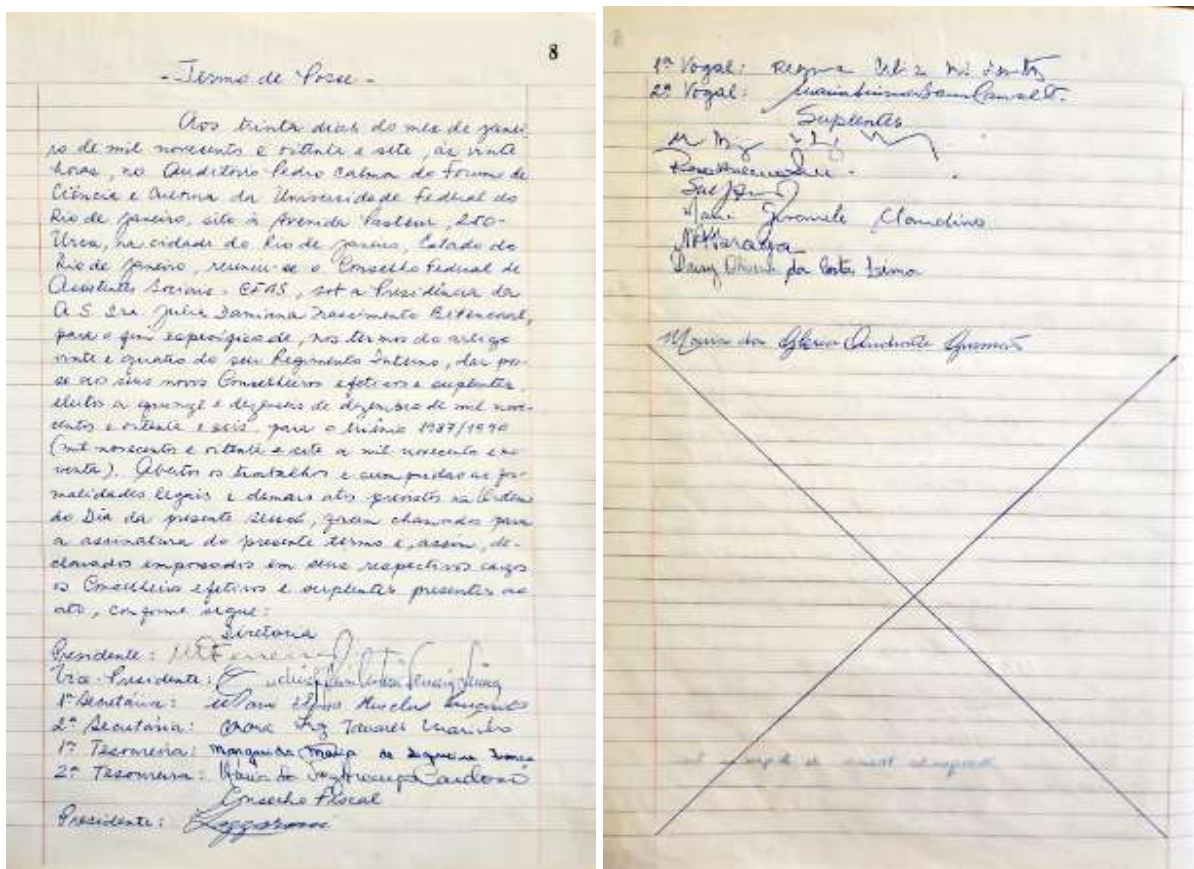 8
- Termo de Posse -
Aos trinta dias do mês de janei-
ro de mil novecentos e oitenta e sete, às vinte
horas, no Auditório Pedro Calmon do Forum de
Ciência e Cultura da Universidade Federal do
Rio de Janeiro, sito à Avenida Pasteur, 250-
Urca, na cidade do Rio de Janeiro, Estado do
Rio de Janeiro, reuniu-se o Conselho Federal de
Assistentes Sociais - CFAS, sob a Presidência da
A.S. Sra. Julia Damiana Nascimento Bitencourt,
para o fim específico de, nos termos do artigo
vinte e quatro do seu Regimento Interno, dar pos-
se aos seus novos Conselheiros efetivos e suplentes,
eleitos a quinze e dezesseis de dezembro de mil nove-
centos e oitenta e seis para o triênio 1987/1990
(mil novecentos e oitenta e sete a mil novecentos e no-
venta). Abertos os trabalhos e cumpridas as for-
malidades legais e demais atos previstos na Ordem
do Dia da presente sessão, foram chamados para
a assinatura do presente termo e, assim, de-
clarados empossados em seus respectivos cargos
os Conselheiros efetivos e suplentes presentes ao
ato, conforme segue:
Diretoria
Presidente:
Vice-Presidente:
1ª Secretária:
2ª Secretária: Tavares Marinho
1ª Tesoureira: Margarida Maria de Siqueira
2ª Tesoureira: Maria da Cardoso
Conselho Fiscal
Presidente:
8
1º Vogal: Regina
2º Vogal:
Suplentes
Claudino
da Costa Lima
Maria da Glória